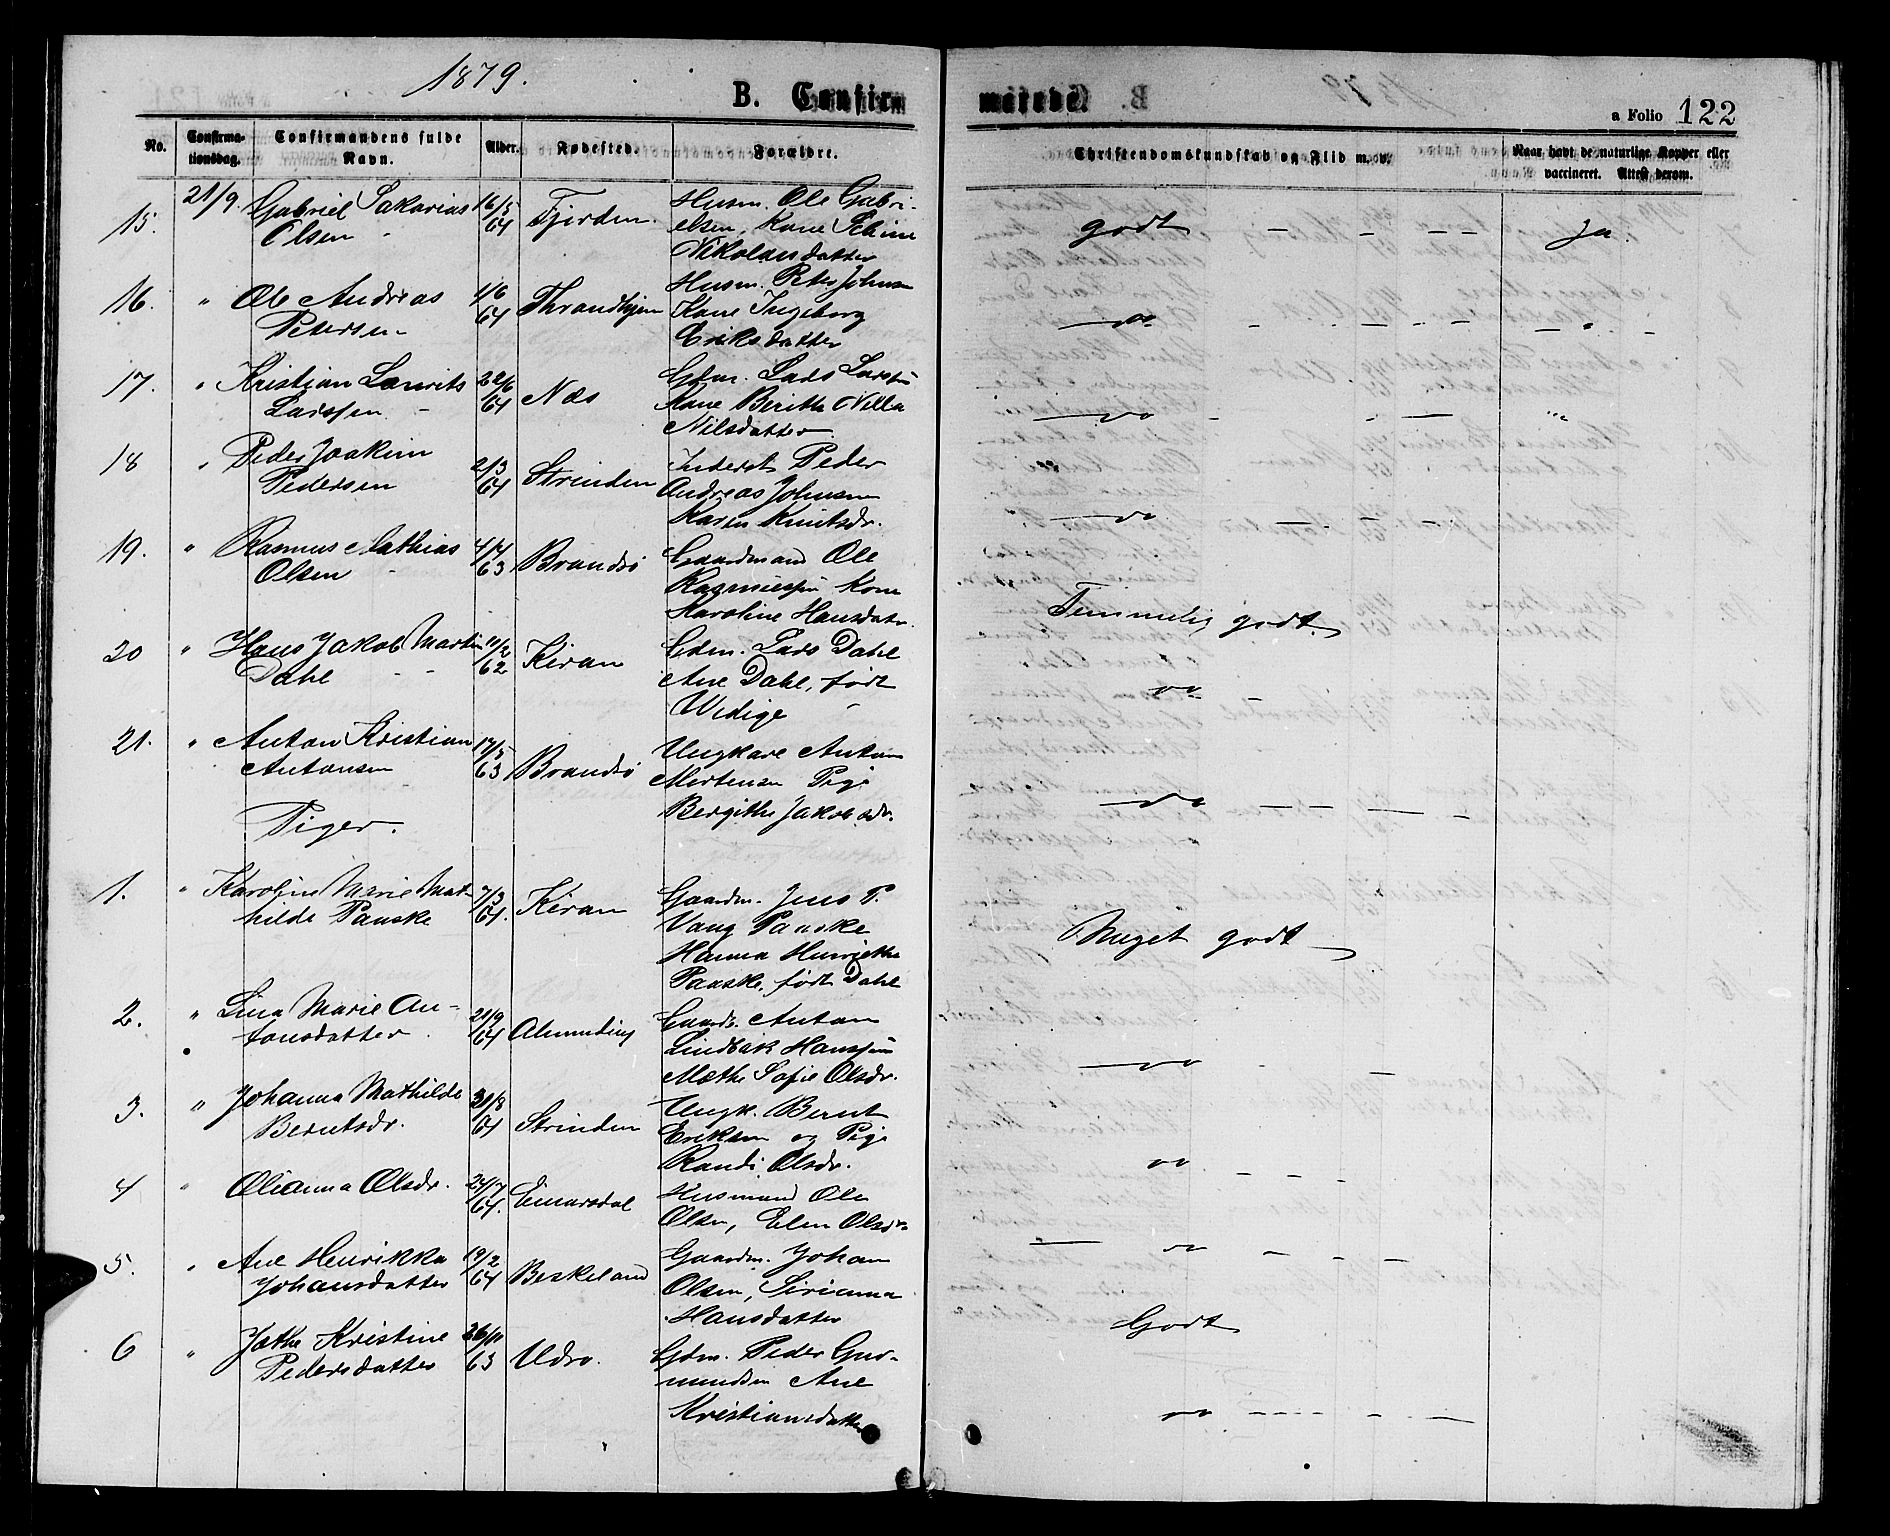 1879.
B. Confir-
merede.
a Folio 122
No.
Confirma-
tionsdag.
Confirmandens fulde
Navn.
Alder.
Fødested.
Forældre.
Christendomskundskab og Flid m. v.
Naar havt de naturlige Kopper eller
vaccineret. Attest derom.
15. 21/9. Gabriel Sakarias 16/5 Fjorden. Husm. Ole Gabri-
Olsen 64 elsen, Kone
Nikolausdatter
godt - - - - Ja.
16. " Ole Andreas 1/6 Thrandhjem Husm. Peter Johnsen
Petersen 64 Kone Ingeborg
Eriksdatter
do - - - - "
17. " Kristian Laurits 22/6 Næs Gdm. Lars Larssen
Larssen 64 Kone Berithe Nilla
Nilsdatter
do - - - "
18 " Peder Joakim 2/3 Strinden Inderst Peder
Pedersen 64 Andreas Johnsen
Karen Knutsdr.
do - - -
19. " Rasmus Mathias 4/4 Brandsø Gaardmand Ole
Olsen 63 Rasmussen Kone
Karoline Hansdatr.
Temmelig godt.
20 " Hans Jakob Martin 11/2 Kiran Gdm. Lars Dahl
Dahl 62 Ane Dahl, født
Widige
do -
21. " Anton Kristian 17/5 Brandsø Ungkare Anton
Antonsen 63 Mortensen Pige
Bergithe Jakobsdr.
do - - - -
Piger.
1. " Karoline Marie Mat- 7/3 Kiran Gaardm. Jens P.
hilde Panske 64. Vang Panske
Hanna Henrikke
Panske, født Dahl
Meget godt
2. " Lina Marie An- 21/9 Almending Gaardm. Anton
tonsdatter 64 Lindbak Hanssen
Mæthe Sofie Olsdr.
do - -
3. " Johanna Mathilde 31/8 Strinden Ungk. Bernt
Berntsdr. 64 Eriksen og Pige
Randi Olsdr.
do - - - -
4 " Olianna Olsdr. 24/7 Einarsdal Husmand Ole
64. Olsen, Elen Olsdr.
do - - -
5. " Ane Henrikka 19/2 Beskeland Gaardm. Johan
Johansdatter 64 Olsen, Sirianna
Hansdatter
Godt
6 " Jøthe Kristine 26/11 Udro. Gdm. Peder Gud-
Pedersdatter 63 mundsen Ane
Kristiansdatter
do - - - - - -